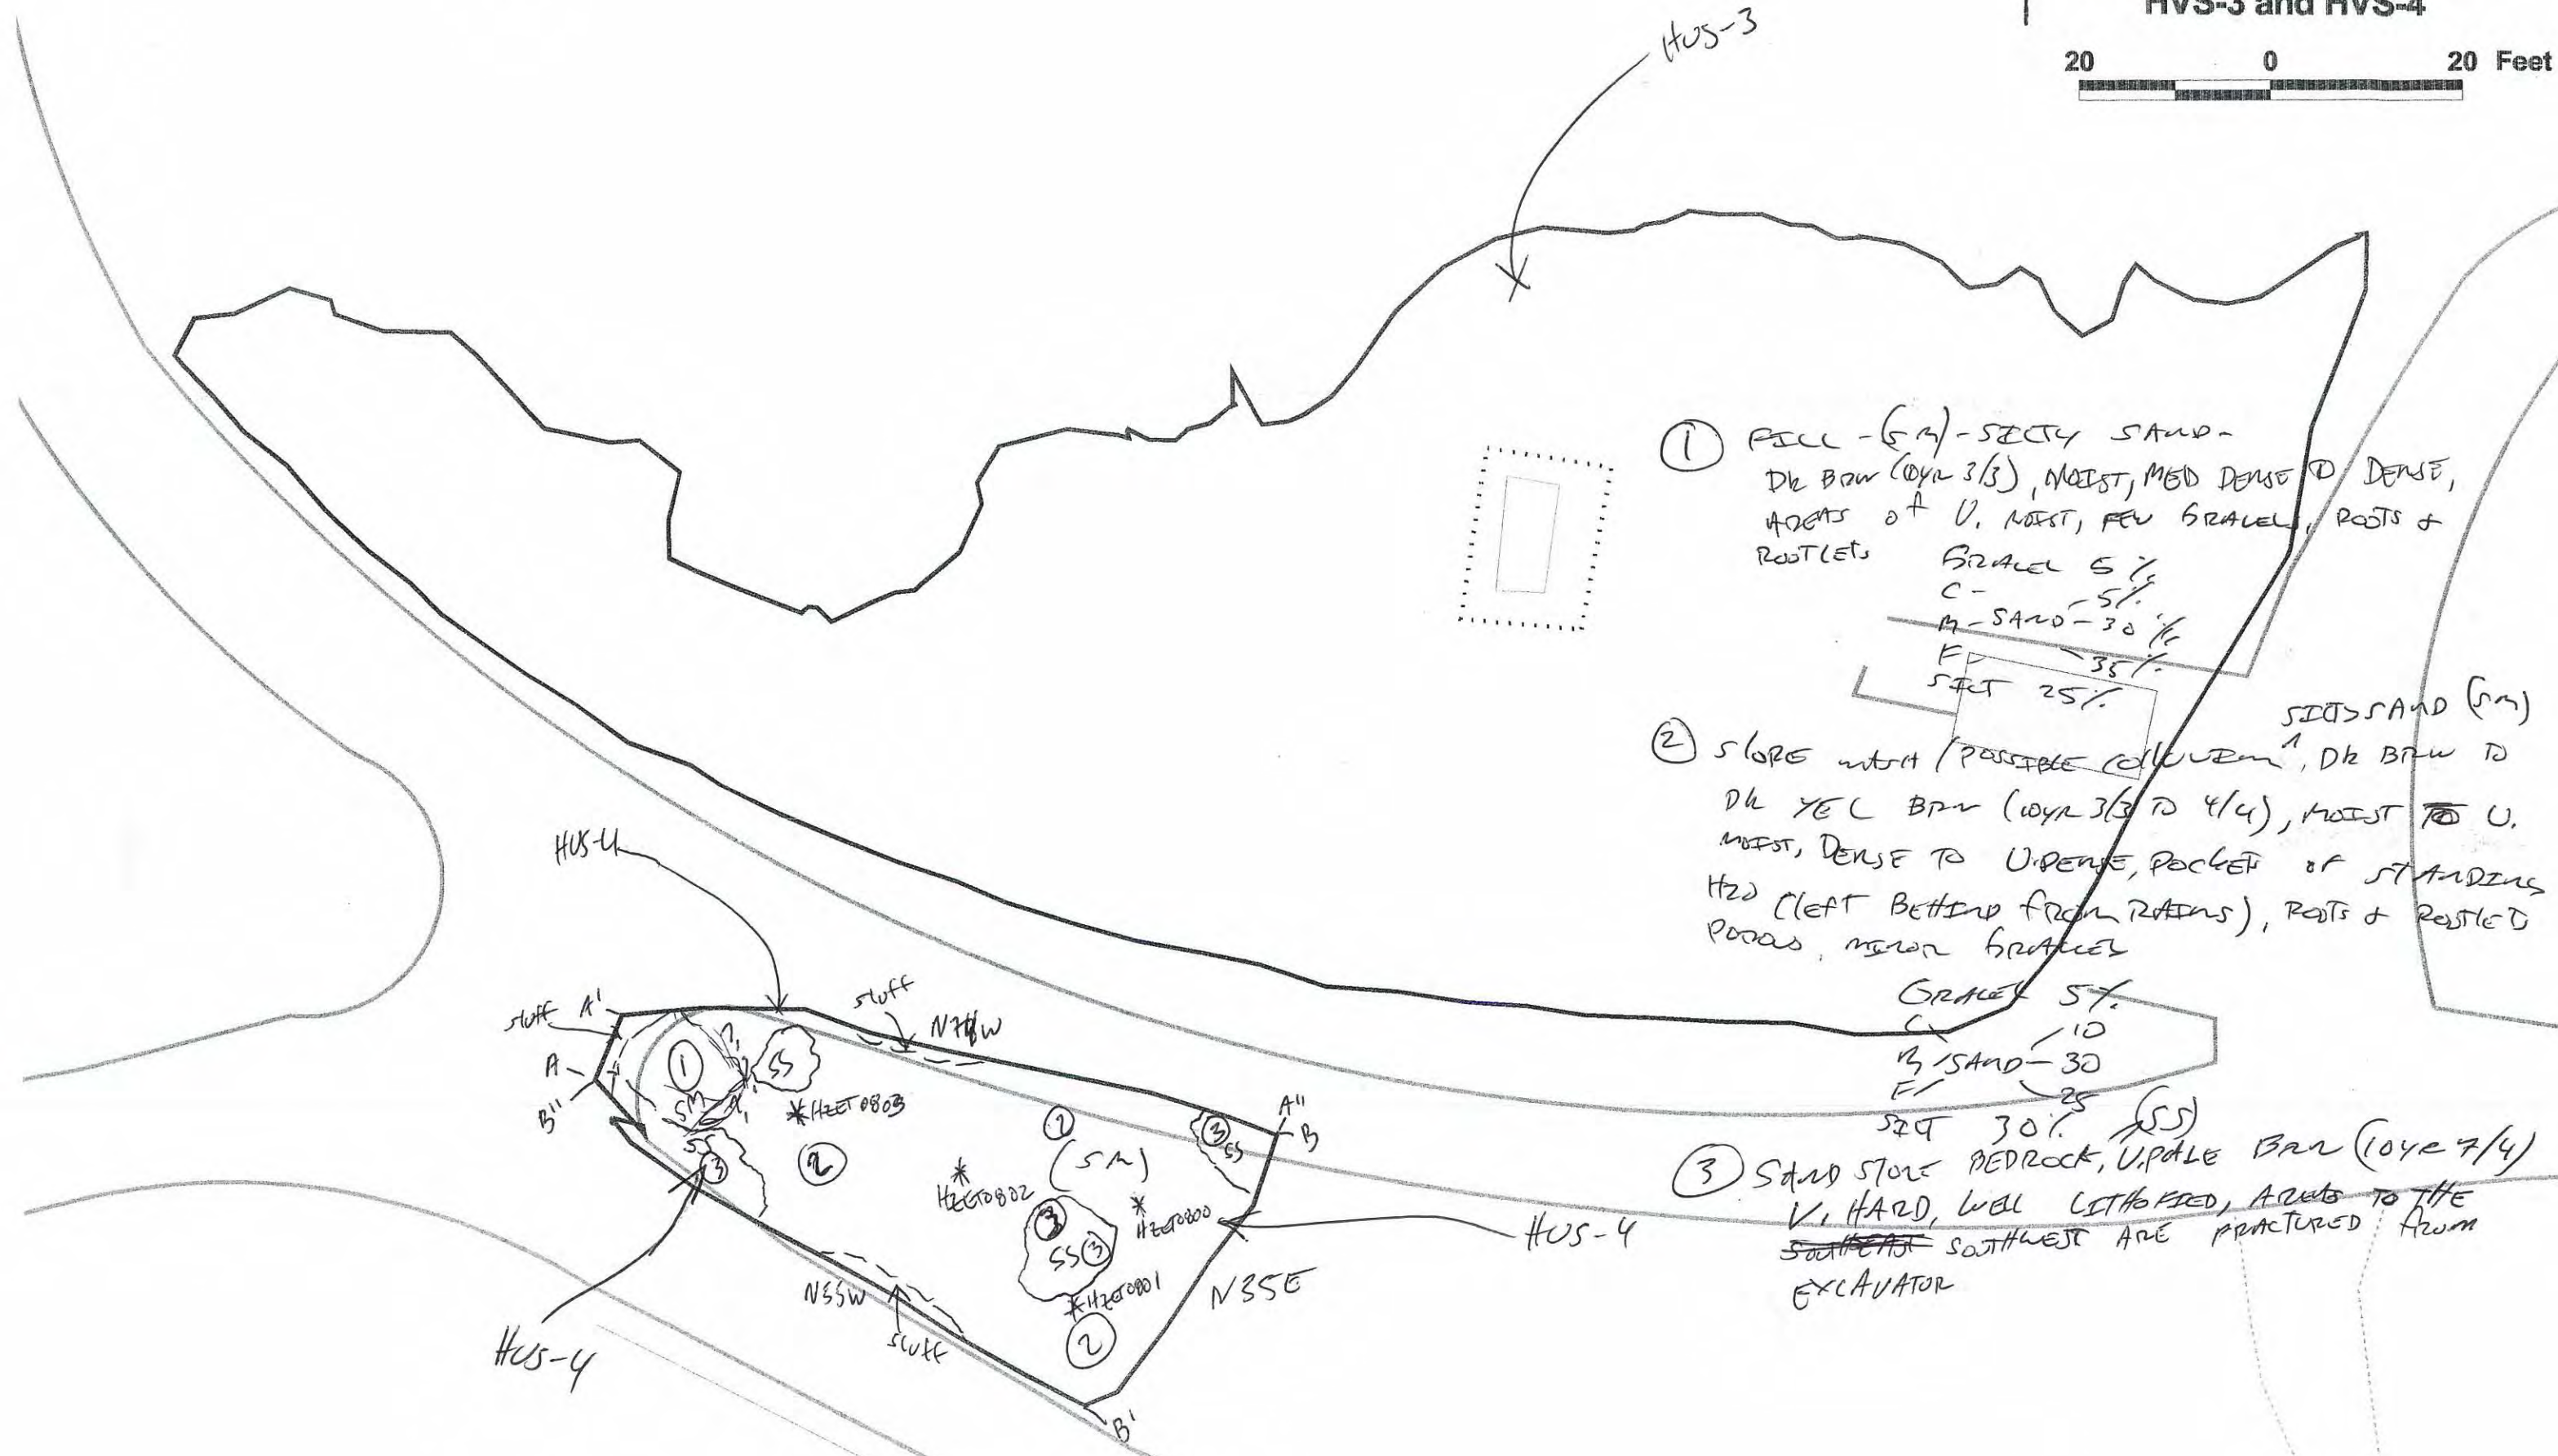 HVS-3 and HVS-4
20 0 20 Feet
HVS-3
① FILL -(SM)-SILTY SAND-
DK BRW (10YR 3/3), MOIST, MED DENSE TO DENSE,
AREAS OF V. MOIST, FEW GRAVELS, ROOTS &
ROOTLETS
GRAVEL 5%
C - 5%
M - SAND - 30%
F - 35%
SILT 25%
SILTY SAND (SM)
② SLOPE WASH / POSSIBLE COLLUVIUM ^, DK BRW TO
DK YEL BRN (10YR 3/3 TO 4/4), MOIST TO V.
MOIST, DENSE TO V. DENSE, POCKETS OF STANDING
H2O (LEFT BEHIND FROM RAINS), ROOTS & ROOTLETS
MINOR GRAVELS
GRAVEL 5%
C 10
M / SAND - 30
F / 25
SILT 30%
(SS)
③ SANDSTONE BEDROCK, V. PALE BRN (10YR 7/4)
V. HARD, WELL LITHOFIED, AREAS TO THE
SOUTHEAST SOUTHWEST ARE FRACTURED FROM
EXCAVATOR
HVS-4
sluff A'
sluff
N78W
A
B"
① SM
SS
*HZET0803
SS
③
②
② (SM)
*
HZET0802
*
HZET0800
③
SS ③
③ SS
A"
B
*HZET0801
②
HVS-4
N35E
N55W
sluff
HVS-4
B'